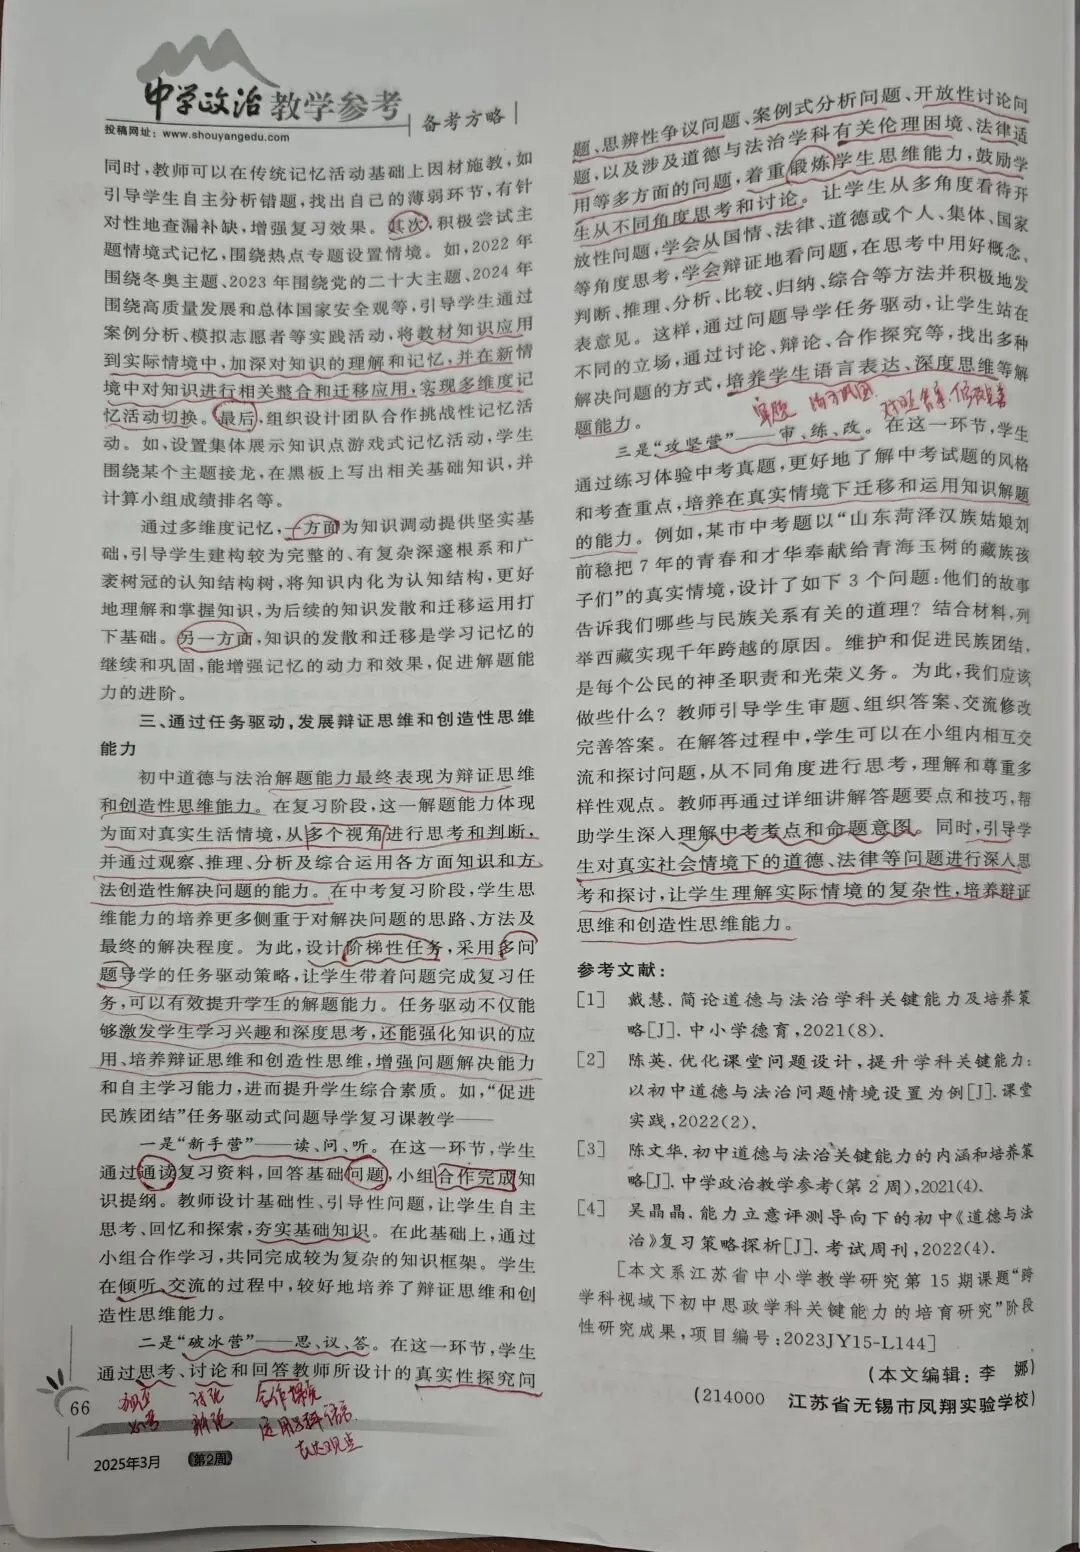 中学政治教学参考
备考方略
投稿网址：www.shouyangedu.com
同时,教师可以在传统记忆活动基础上因材施教,如
引导学生自主分析错题,找出自己的薄弱环节,有针
对性地查漏补缺,增强复习效果。其次,积极尝试主
题情境式记忆,围绕热点专题设置情境。如,2022 年
围绕冬奥主题、2023 年围绕党的二十大主题、2024 年
围绕高质量发展和总体国家安全观等,引导学生通过
案例分析、模拟志愿者等实践活动,将教材知识应用
到实际情境中,加深对知识的理解和记忆,并在新情
境中对知识进行相关整合和迁移应用,实现多维度记
忆活动切换。最后,组织设计团队合作挑战性记忆活
动。如,设置集体展示知识点游戏式记忆活动,学生
围绕某个主题接龙,在黑板上写出相关基础知识,并
计算小组成绩排名等。
通过多维度记忆,一方面为知识调动提供坚实基
础,引导学生建构较为完整的、有复杂深邃根系和广
袤树冠的认知结构树,将知识内化为认知结构,更好
地理解和掌握知识,为后续的知识发散和迁移运用打
下基础。另一方面,知识的发散和迁移是学习记忆的
继续和巩固,能增强记忆的动力和效果,促进解题能
力的进阶。
三、通过任务驱动,发展辩证思维和创造性思维
能力
初中道德与法治解题能力最终表现为辩证思维
和创造性思维能力。在复习阶段,这一解题能力体现
为面对真实生活情境,从多个视角进行思考和判断,
并通过观察、推理、分析及综合运用各方面知识和方
法创造性解决问题的能力。在中考复习阶段,学生思
维能力的培养更多侧重于对解决问题的思路、方法及
最终的解决程度。为此,设计阶梯性任务,采用多问
题导学的任务驱动策略,让学生带着问题完成复习任
务,可以有效提升学生的解题能力。任务驱动不仅能
够激发学生学习兴趣和深度思考,还能强化知识的应
用、培养辩证思维和创造性思维,增强问题解决能力
和自主学习能力,进而提升学生综合素质。如,“促进
民族团结”任务驱动式问题导学复习课教学——
一是“新手营”——读、问、听。在这一环节,学生
通过通读复习资料,回答基础问题,小组合作完成知
识提纲。教师设计基础性、引导性问题,让学生自主
思考、回忆和探索,夯实基础知识。在此基础上,通过
小组合作学习,共同完成较为复杂的知识框架。学生
在倾听、交流的过程中,较好地培养了辩证思维和创
造性思维能力。
二是“破冰营”——思、议、答。在这一环节,学生
通过思考、讨论和回答教师所设计的真实性探究问
讨论
合作探究
表达观点
66
2025年3月 第2周
题、思辨性争议问题、案例式分析问题、开放性讨论问
题,以及涉及道德与法治学科有关伦理困境、法律适
用等多方面的问题,着重锻炼学生思维能力,鼓励学
生从不同角度思考和讨论。让学生从多角度看待开
放性问题,学会从国情、法律、道德或个人、集体、国家
等角度思考,学会辩证地看问题,在思考中用好概念、
判断、推理、分析、比较、归纳、综合等方法并积极地发
表意见。这样,通过问题导学任务驱动,让学生站在
不同的立场,通过讨论、辩论、合作探究等,找出多种
解决问题的方式,培养学生语言表达、深度思维等解
题能力。
审题
三是“攻坚营”——审、练、改。在这一环节,学生
通过练习体验中考真题,更好地了解中考试题的风格
和考查重点,培养在真实情境下迁移和运用知识解题
的能力。例如,某市中考题以“山东菏泽汉族姑娘刘
前稳把 7 年的青春和才华奉献给青海玉树的藏族孩
子们”的真实情境,设计了如下 3 个问题:他们的故事
告诉我们哪些与民族关系有关的道理？结合材料,列
举西藏实现千年跨越的原因。维护和促进民族团结,
是每个公民的神圣职责和光荣义务。为此,我们应该
做些什么？教师引导学生审题、组织答案、交流修改
完善答案。在解答过程中,学生可以在小组内相互交
流和探讨问题,从不同角度进行思考,理解和尊重多
样性观点。教师再通过详细讲解答题要点和技巧,帮
助学生深入理解中考考点和命题意图。同时,引导学
生对真实社会情境下的道德、法律等问题进行深入思
考和探讨,让学生理解实际情境的复杂性,培养辩证
思维和创造性思维能力。
参考文献：
[1] 戴慧.简论道德与法治学科关键能力及培养策
略[J].中小学德育,2021(8).
[2] 陈英.优化课堂问题设计,提升学科关键能力:
以初中道德与法治问题情境设置为例[J].课堂
实践,2022(2).
[3] 陈文华.初中道德与法治关键能力的内涵和培养策
略[J].中学政治教学参考(第 2 周),2021(4).
[4] 吴晶晶.能力立意评测导向下的初中《道德与法
治》复习策略探析[J].考试周刊,2022(4).
[本文系江苏省中小学教学研究第 15 期课题“跨
学科视域下初中思政学科关键能力的培育研究”阶段
性研究成果,项目编号:2023JY15-L144]
(本文编辑：李 娜)
(214000 江苏省无锡市凤翔实验学校)